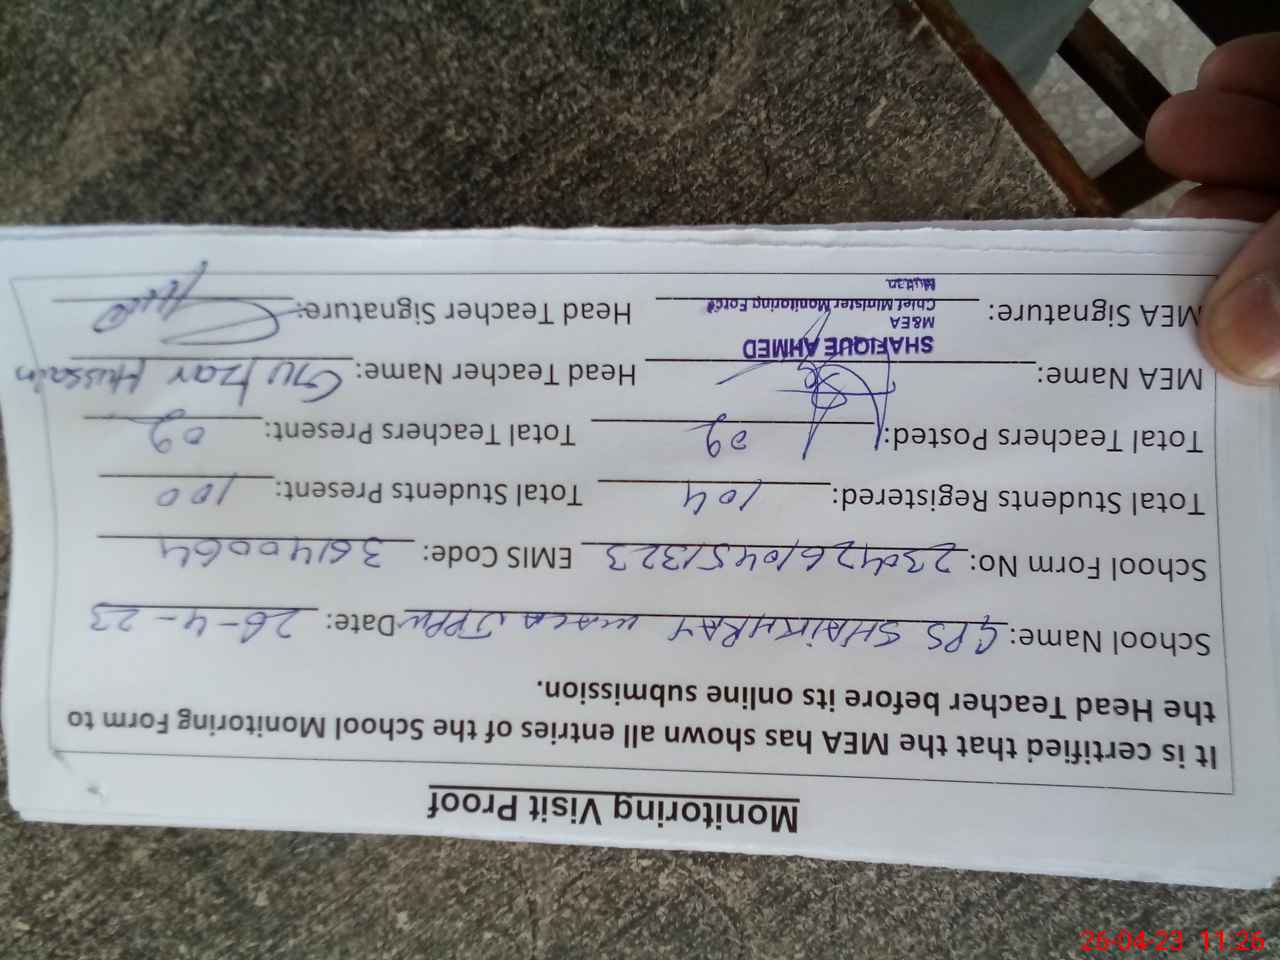 Monitoring Visit Proof
It is certified that the MEA has shown all entries of the School Monitoring Form to
the Head Teacher before its online submission.
School Name: GPS SHAIKHRAY WALA Date: 26-4-23
School Form No: 23042610451323 EMIS Code: 36140064
Total Students Registered: 104 Total Students Present: 100
Total Teachers Posted: 02 Total Teachers Present: 02
MEA Name: Head Teacher Name: Gulzar Hussain
SHAFIQUE AHMED
M&EA
Chief Minister Monitoring Force
Multan
MEA Signature: Head Teacher Signature:
26-04-23 11:26